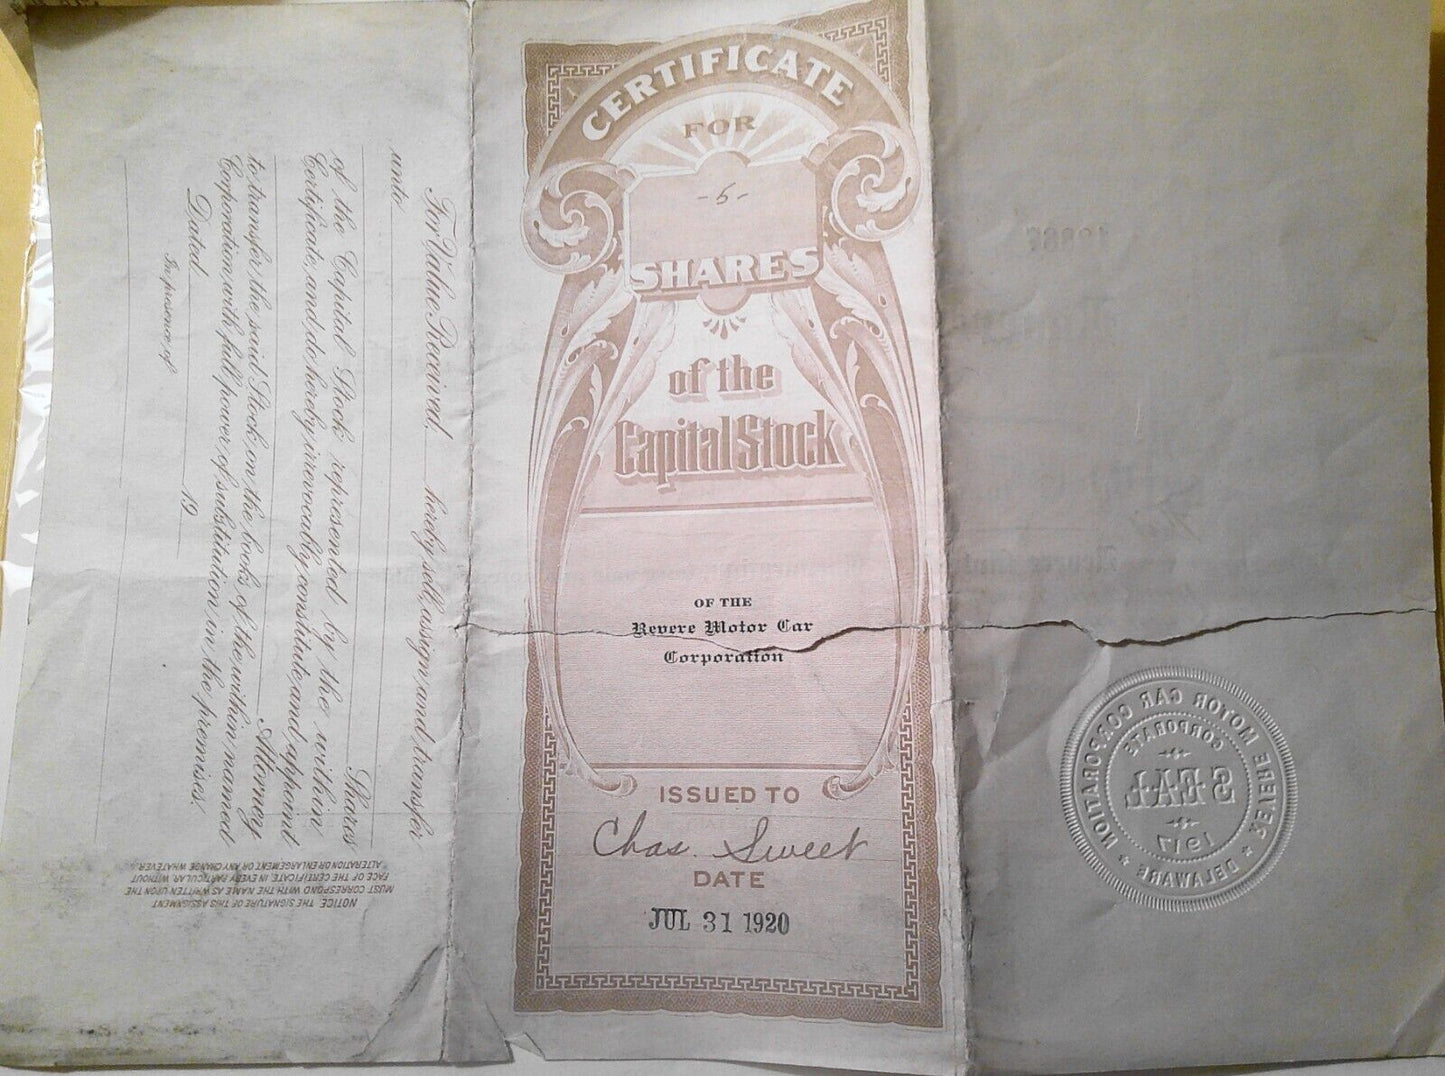 CERTIFICATE
FOR
-5-
SHARES
of the
Capital Stock
OF THE
Revere Motor Car
Corporation
ISSUED TO
Chas. Sweet
DATE
JUL 31 1920
For Value Received, hereby sell, assign and transfer
unto
Shares
of the Capital Stock represented by the within
Certificate, and do hereby irrevocably constitute and appoint
Attorney
to transfer the said Stock on the books of the within named
Corporation, with full power of substitution in the premises.
Dated 19
In presence of
NOTICE THE SIGNATURE OF THIS ASSIGNMENT
MUST CORRESPOND WITH THE NAME AS WRITTEN UPON THE
FACE OF THE CERTIFICATE, IN EVERY PARTICULAR, WITHOUT
ALTERATION OR ENLARGEMENT OR ANY CHANGE WHATEVER.
REVERE MOTOR CAR CORPORATION
DELAWARE
CORPORATE
SEAL
1917